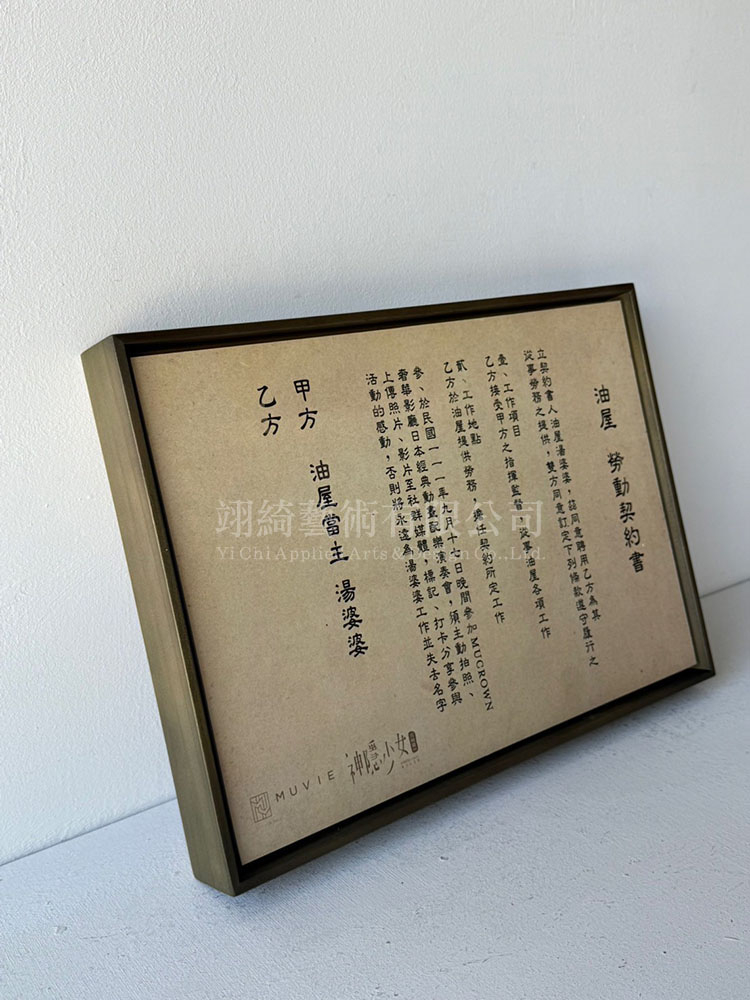 油屋 勞動契約書
立契約書人油屋湯婆婆，茲同意聘用乙方為其
從事勞務之提供，雙方同意訂定下列條款遵守履行之
壹、工作項目
乙方接受甲方之指揮監督，從事油屋各項工作
貳、工作地點
乙方於油屋提供勞務，擔任契約所定工作
參、於民國一一一年九月十七日晚間參加MUCROWN
奢華影廳日本經典動畫配樂演奏會，須主動拍照、
上傳照片、影片至社群媒體，標記、打卡分享參與
活動的感動，否則將永遠為湯婆婆工作並失去名字
甲方 油屋當主 湯婆婆
乙方
MUVIE 神隱少女
翊綺藝術有限公司
Yi Chi Applied Arts & Design Co., Ltd.